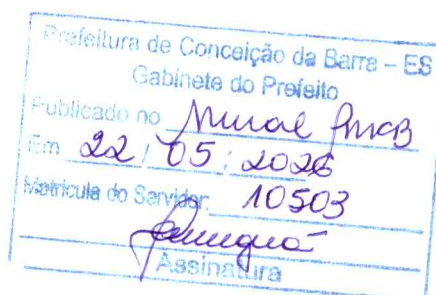 Prefeitura de Conceição da Barra – ES
Gabinete do Prefeito
Publicado no Mural PMCB
Em 22 / 05 / 2026
Matrícula do Servidor: 10503
Assinatura